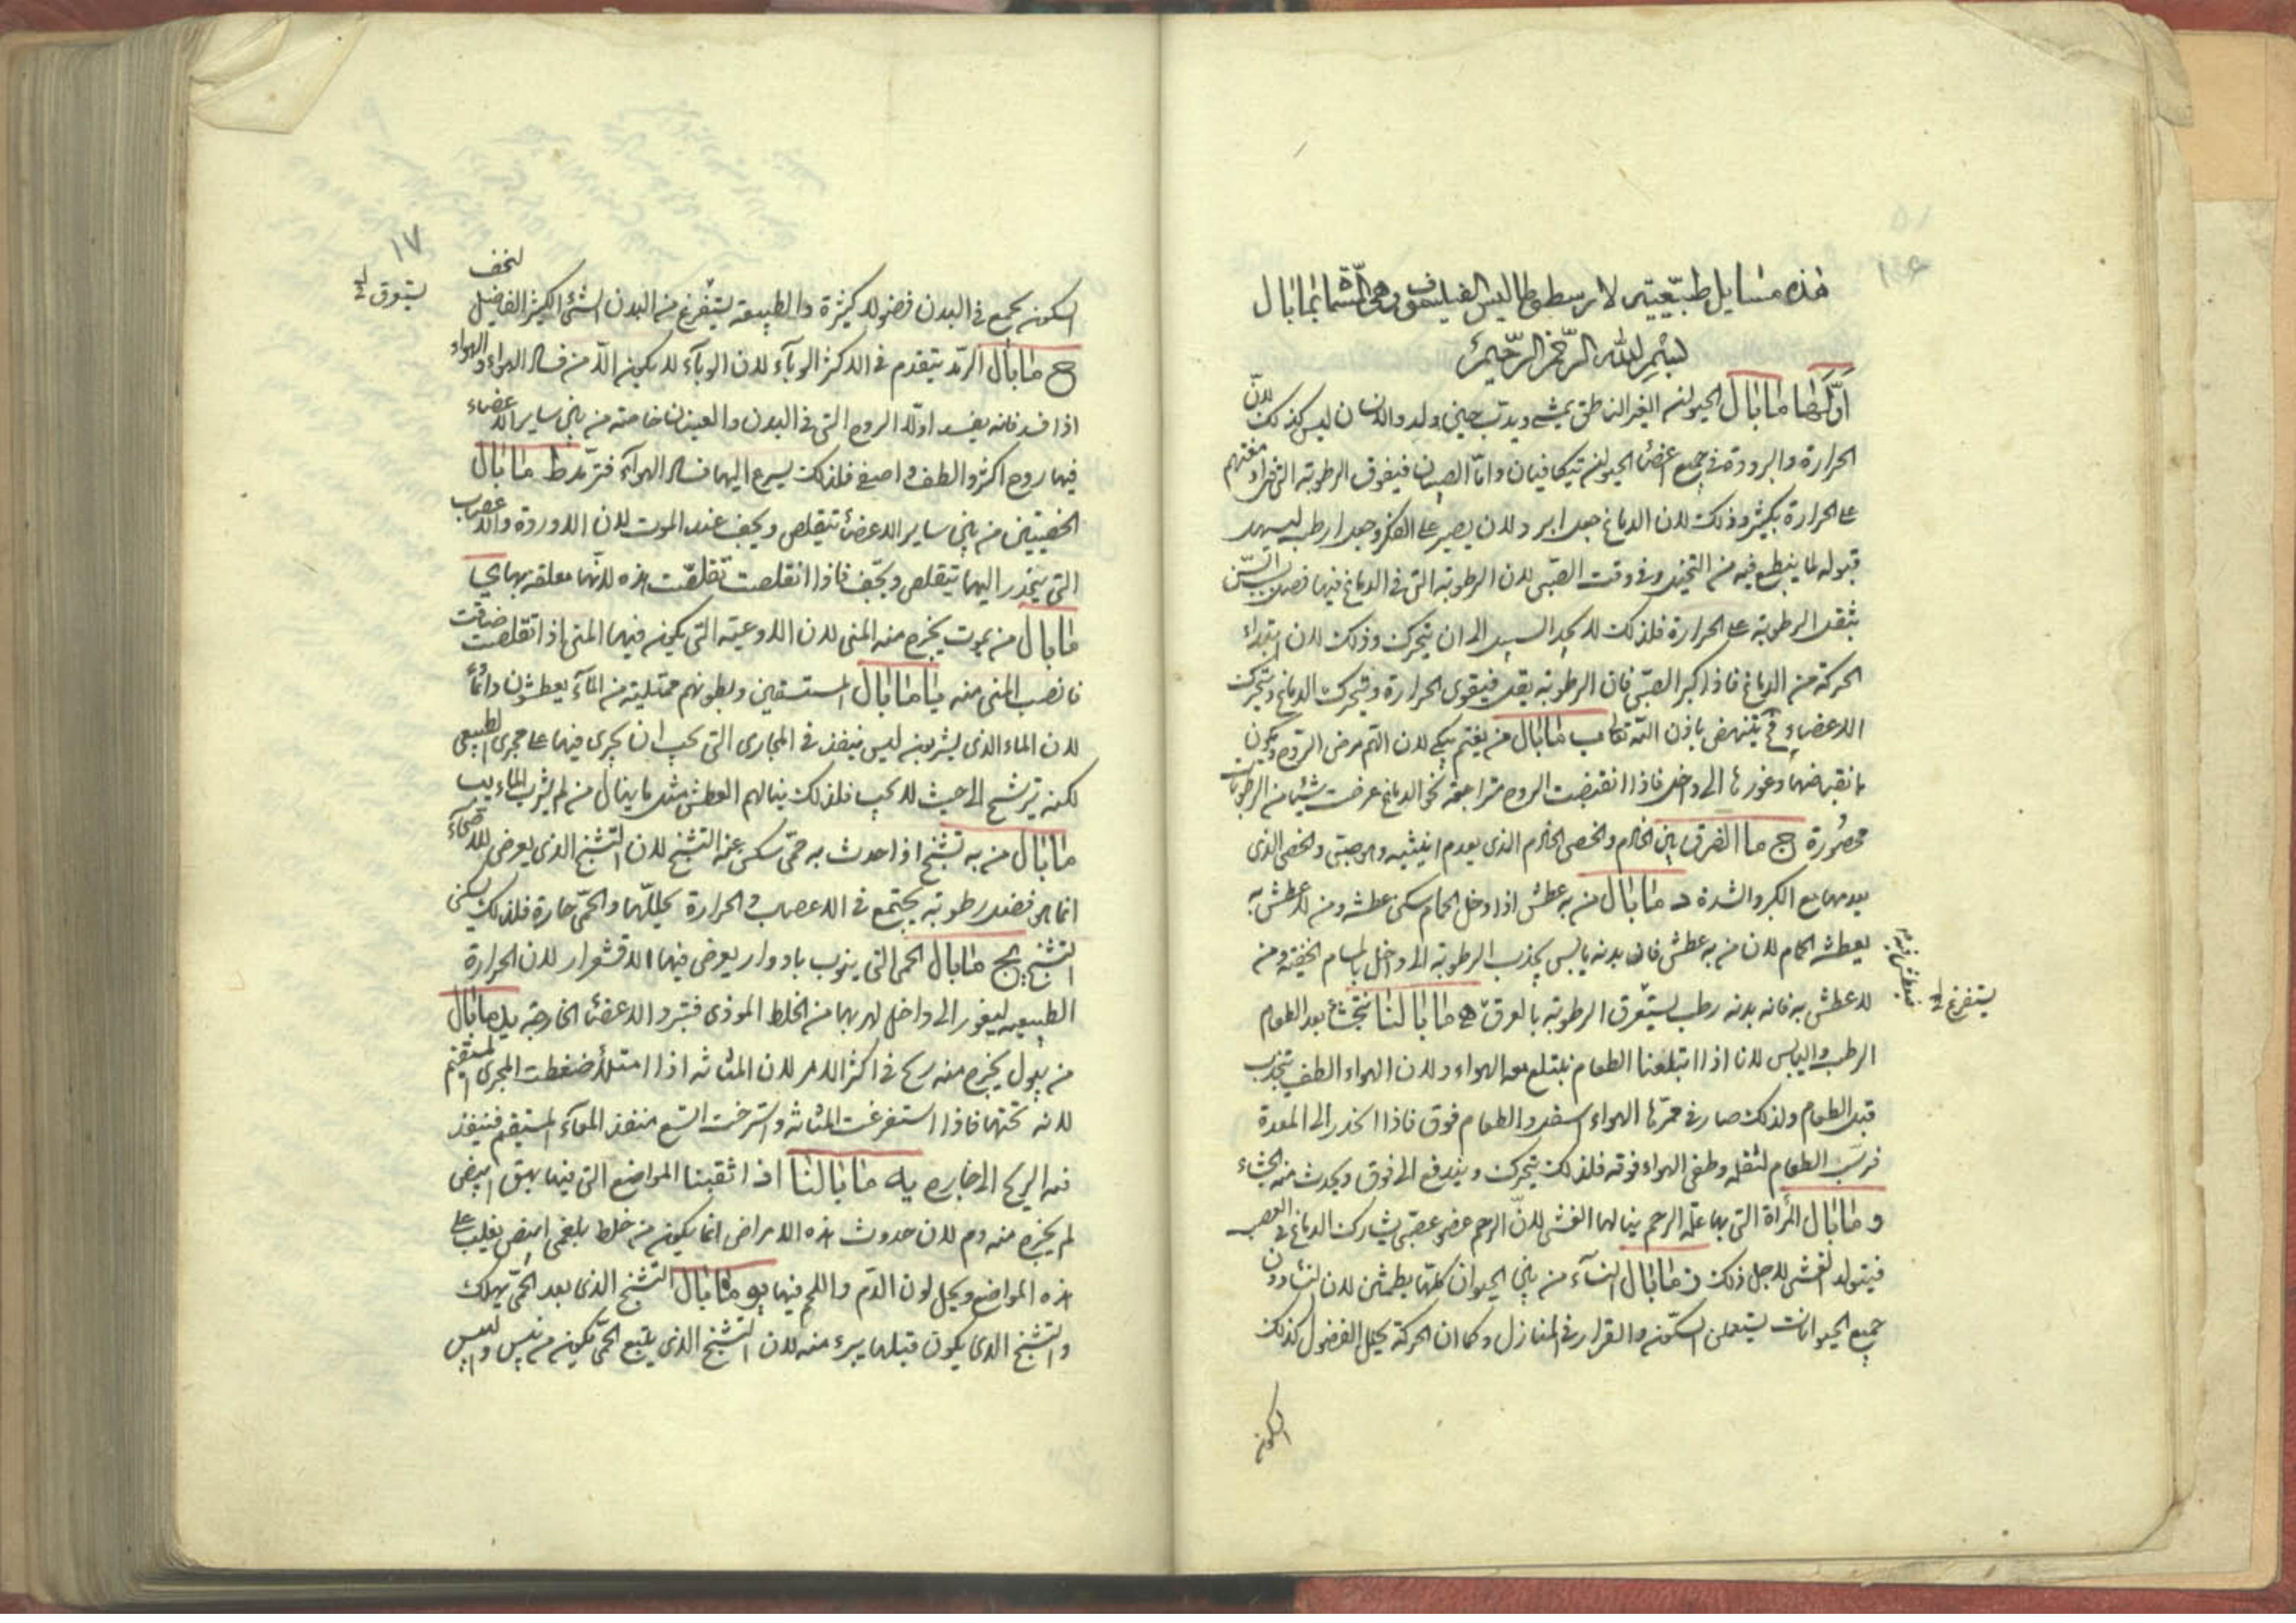 هذه مسايل طبيعية لارسطوطاليس الفيلسوف وهي التسما بما بال
بسم الله الرحمن الرحيم
اولها ما بال الحيوان الغير الناطق يمشي ويدب حين يولد والانسان ليس كذلك لان
الحرارة والبرودة في جميع اعضا الحيوان تتكافيان واما الصبيان فيفوق الرطوبة التي في ادمغتهم
على الحرارة بكثير وذلك لان الدماغ جعل ابرد لان يصير على الفكر وجعل ارطب ليسهل
قبوله لما ينطبع فيه من التخيل وفي وقت الصبى لان الرطوبة التي في الدماغ فيها فضل بسبب السن
يثقل الرطوبة على الحرارة فلذلك لا يجد السبيل الى ان يتحرك وذلك لان ابتداء
الحركة من الدماغ فاذا كبر الصبي فان الرطوبة يقل فيقوى الحرارة وفيحرك الدماغ ويتحرك
الاعضاء وح ينهض باذن الله تعالى ب ما بال من يغتم يبكي لان الغم مرض الروح ويكون
بانقباضها وغورها الى داخل فاذا انقبضت الروح متراجعة نحو الدماغ عرضت شيئا من الرطوبات
محصورة ج ما الفرق بين الخادم والخصي الخادم الذي يعدم انثييه وهو صبي والخصي الذي
يعدمها مع الكبر والشدة د ما بال من به عطش اذا دخل الحمام سكن عطشه ومن لا عطش به
يعطشه الحمام لان من به عطش فان بدنه يابس يجذب الرطوبة الى داخل بالمسام الخفية ومن
لا عطش به فانه بدنه رطب يستفرق الرطوبة بالعرق ه ما بالنا نتجشأ بعد الطعام
فيعطش بدنه
يستفرغ
الرطب واليابس لانا اذا ابتلعنا الطعام نبتلع معه الهواء ولان الهواء الطف ينجذب
قبل الطعام ولذلك صار في ممرها الهواء اسفل والطعام فوق فاذا انحدر الى المعدة
فرسب الطعام لثقله وطفى الهواء فوقه فلذلك يتحرك ويندفع الى فوق ويحدث منه الجشاء
و ما بال المرأة التي بها علة الرحم ينالها الغشي لان الرحم عضو عصبي يشارك الدماغ في العصب
فيتولد الغشي لاجل ذلك ز ما بال النساء من بين الحيوان كلها يطمثن لان النساء دون
جميع الحيوانات يستعملن السكون والقرار في المنازل وكما ان الحركة يحلل الفضول كذلك
السكون
١٧
السكون يجمع في البدن فضولا كثيرة والطبيعة يستفرغ من البدن الشئ الكثير الفاضل لتخف
يستفرق
ح ما بال الرمد يتقدم في الاكثر الوباء لان الوباء لا يكون الا من فساد الهواء والهواء
اذا فسد فانه يفسد اولا الروح التي في البدن والعينان خاصة من بين ساير الاعضاء
فيها روح اكثر والطف واصفى فلذلك يسرع اليهما فساد الهواء فترمد ط ما بال
الخصيتين من بين ساير الاعضاء تتقلص ويجف عند الموت لان الاوردة والاعصاب
التي ينحدر اليهما يتقلص ويجف فاذا انقلصت تقلصت هذه لانها معلقة بها ي
ما بال من يموت يخرج منه المني لان الاوعية التي يكون فيها المني اذا تقلصت ضاقت
فانصب المني منه يا ما بال المستسقين وبطونهم ممتلية من الماء يعطشون دائما
لان الماء الذي يشربونه ليس ينفذ في المجاري التي يجب ان يجري فيها على مجرى الطبيعي
لكنه يترشح الى حيث لا يجب فلذلك ينالهم العطش مثل ما ينال من لم يشرب الماء يب
ما بال من به تشنج اذا حدث به حمى سكن عنه التشنج لان التشنج الذي يعرض للاصحاء
انما هو فضل رطوبة يجتمع في الاعصاب والحرارة يحللها والحمى حارة فلذلك يسكن
التشنج يج ما بال الحمى التي ينوب بادوار يعرض فيها الاقشعرار لان الحرارة
الطبيعية ليغور الى داخل لهربها من الخلط الموذي فتبرد الاعضا الخارجة يد ما بال
من يبول يخرج منه ريح في اكثر الامر لان المثانة اذا امتلأ ضغطت المجرى المستقيم
لانه تحتها فاذا استفرغت المثانة واسترخت اتسع منفذ المعاء المستقيم فينفذ
فيه الريح الى خارج يه ما بالنا اذا ثقبنا المواضع التي فيها بهق ابيض
لم يخرج منه دم لان حدوث هذه الامراض انما يكون من خلط بلغمي ابيض يغلب على
هذه المواضع ويحيل لون الدم واللحم فيها يو ما بال التشنج الذي بعد الحمى يهلك
والتشنج الذي يكون قبلها يبرء منه لان التشنج الذي يتبع الحمى يكون من يبس واليبس